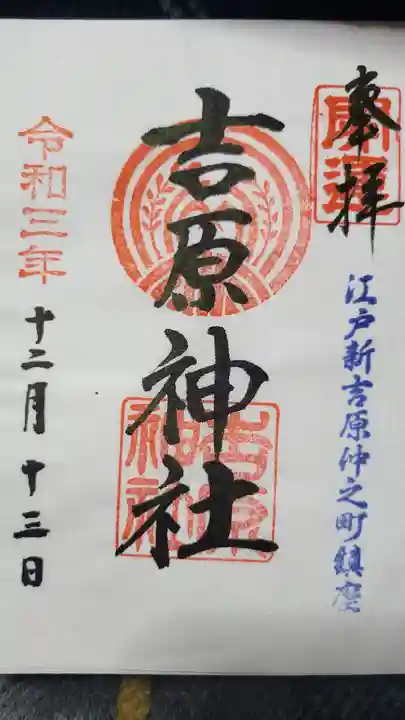 奉拝
開運
江戸新吉原仲之町鎮座
吉原神社
吉原神社
令和三年
十二月十三日